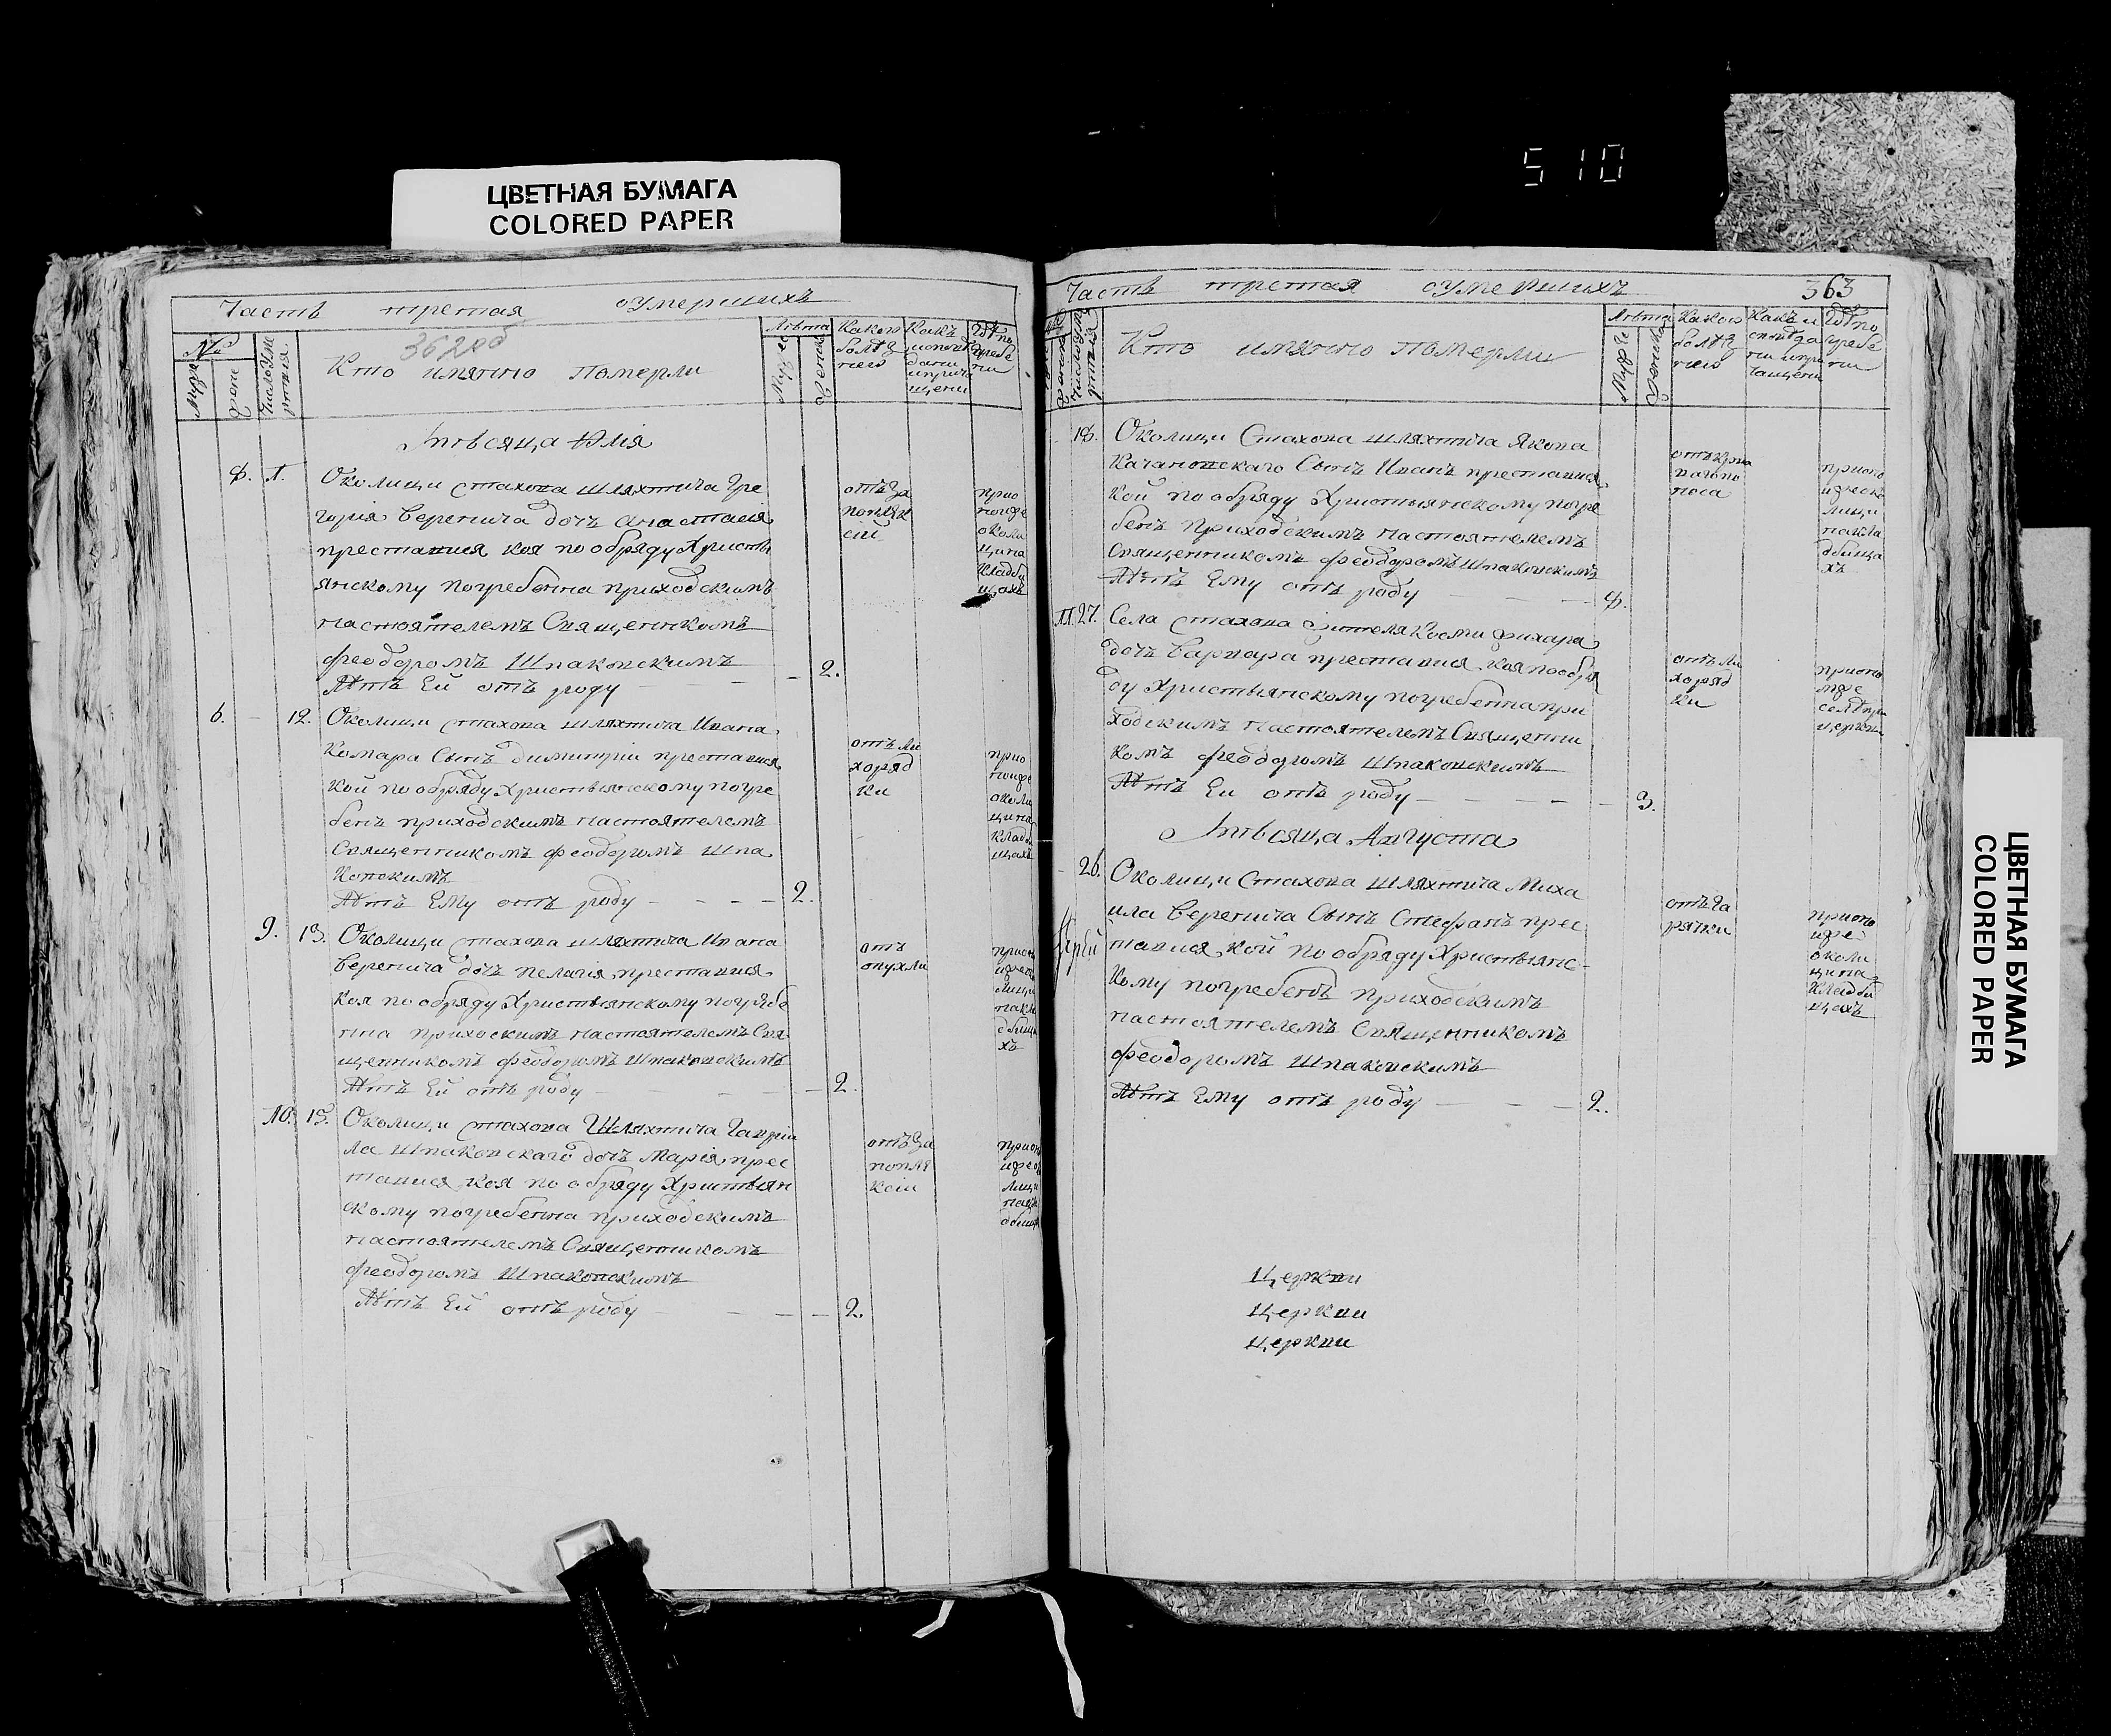 ЦВЕТНАЯ БУМАГА
COLORED PAPER
510
Часть третая оумершихъ
362 об
№
Кто имянно померли
Лѣта
Мѣсяца Юлія
8. 1.
Околици Стахова шляхтича Гре
горія Веренича дочь Анастасия
преставися коя по обряду Христьы
янскому погребенна приходскимъ
настоятелемъ Священикомъ
Феодоромъ Шпаковскимъ
Лѣтъ Ей отъ роду 2.
6. 12. Околици Стахова шляхтича Ивана
Комара Сынъ Димитрій преставися
кой по обряду Христьянскому погре
бенъ приходскимъ настоятелемъ
Священникомъ Феодоромъ Шпа
ковскимъ
Лѣтъ Ему отъ роду 2.
отъ ли
хорад
ки
9. 13. Околици Стахова шляхтича Ивана
Веренича дочь Пелагія преставися
коя по обряду Христьянскому погребе
нна прихоскимъ настоятелемъ Свя
щенникомъ Феодоромъ Шпаковскимъ
Лѣтъ Ей отъ роду 2.
отъ
опухли
10. 15. Околици Стахова Шляхтича Гаврии
ла Шпаковскаго дочь Марія прес
тавися коя по обряду Христьян
скому погребенна приходскимъ
настоятелемъ Священникомъ
Феодоромъ Шпаковскимъ
Лѣтъ Ей отъ роду 2.
Часть третая оумершихъ
363
Кто имянно померли
Лѣта
18. Околици Стахова шляхтича Якова
Качановскаго Сынъ Иванъ преставися
кой по обряду Христьянскому погре
бенъ приходскимъ настоятелемъ
Священникомъ Феодоромъ Шпаковскимъ
Лѣтъ Ему отъ роду 8.
11. 27. Села Стахова жителя Косми
дочь Варвара преставися коя по обря
ду Христьянскому погребенна при
ходскимъ настоятелемъ Священни
комъ Феодоромъ Шпаковскимъ
Лѣтъ Ей отъ роду 3.
отъ ли
хоряд
ки
Мѣсяца Августа
26. Околици Стахова шляхтича Миха
ила Веренича Сынъ Стефанъ прес
тавися кой по обряду Христьянс-
кому погребенъ приходскимъ
настоятелемъ Священникомъ
Феодоромъ Шпаковскимъ
Лѣтъ Ему отъ роду 2.
отъ га
рячки
Церкви
Церкви
Церкви
ЦВЕТНАЯ БУМАГА
COLORED PAPER